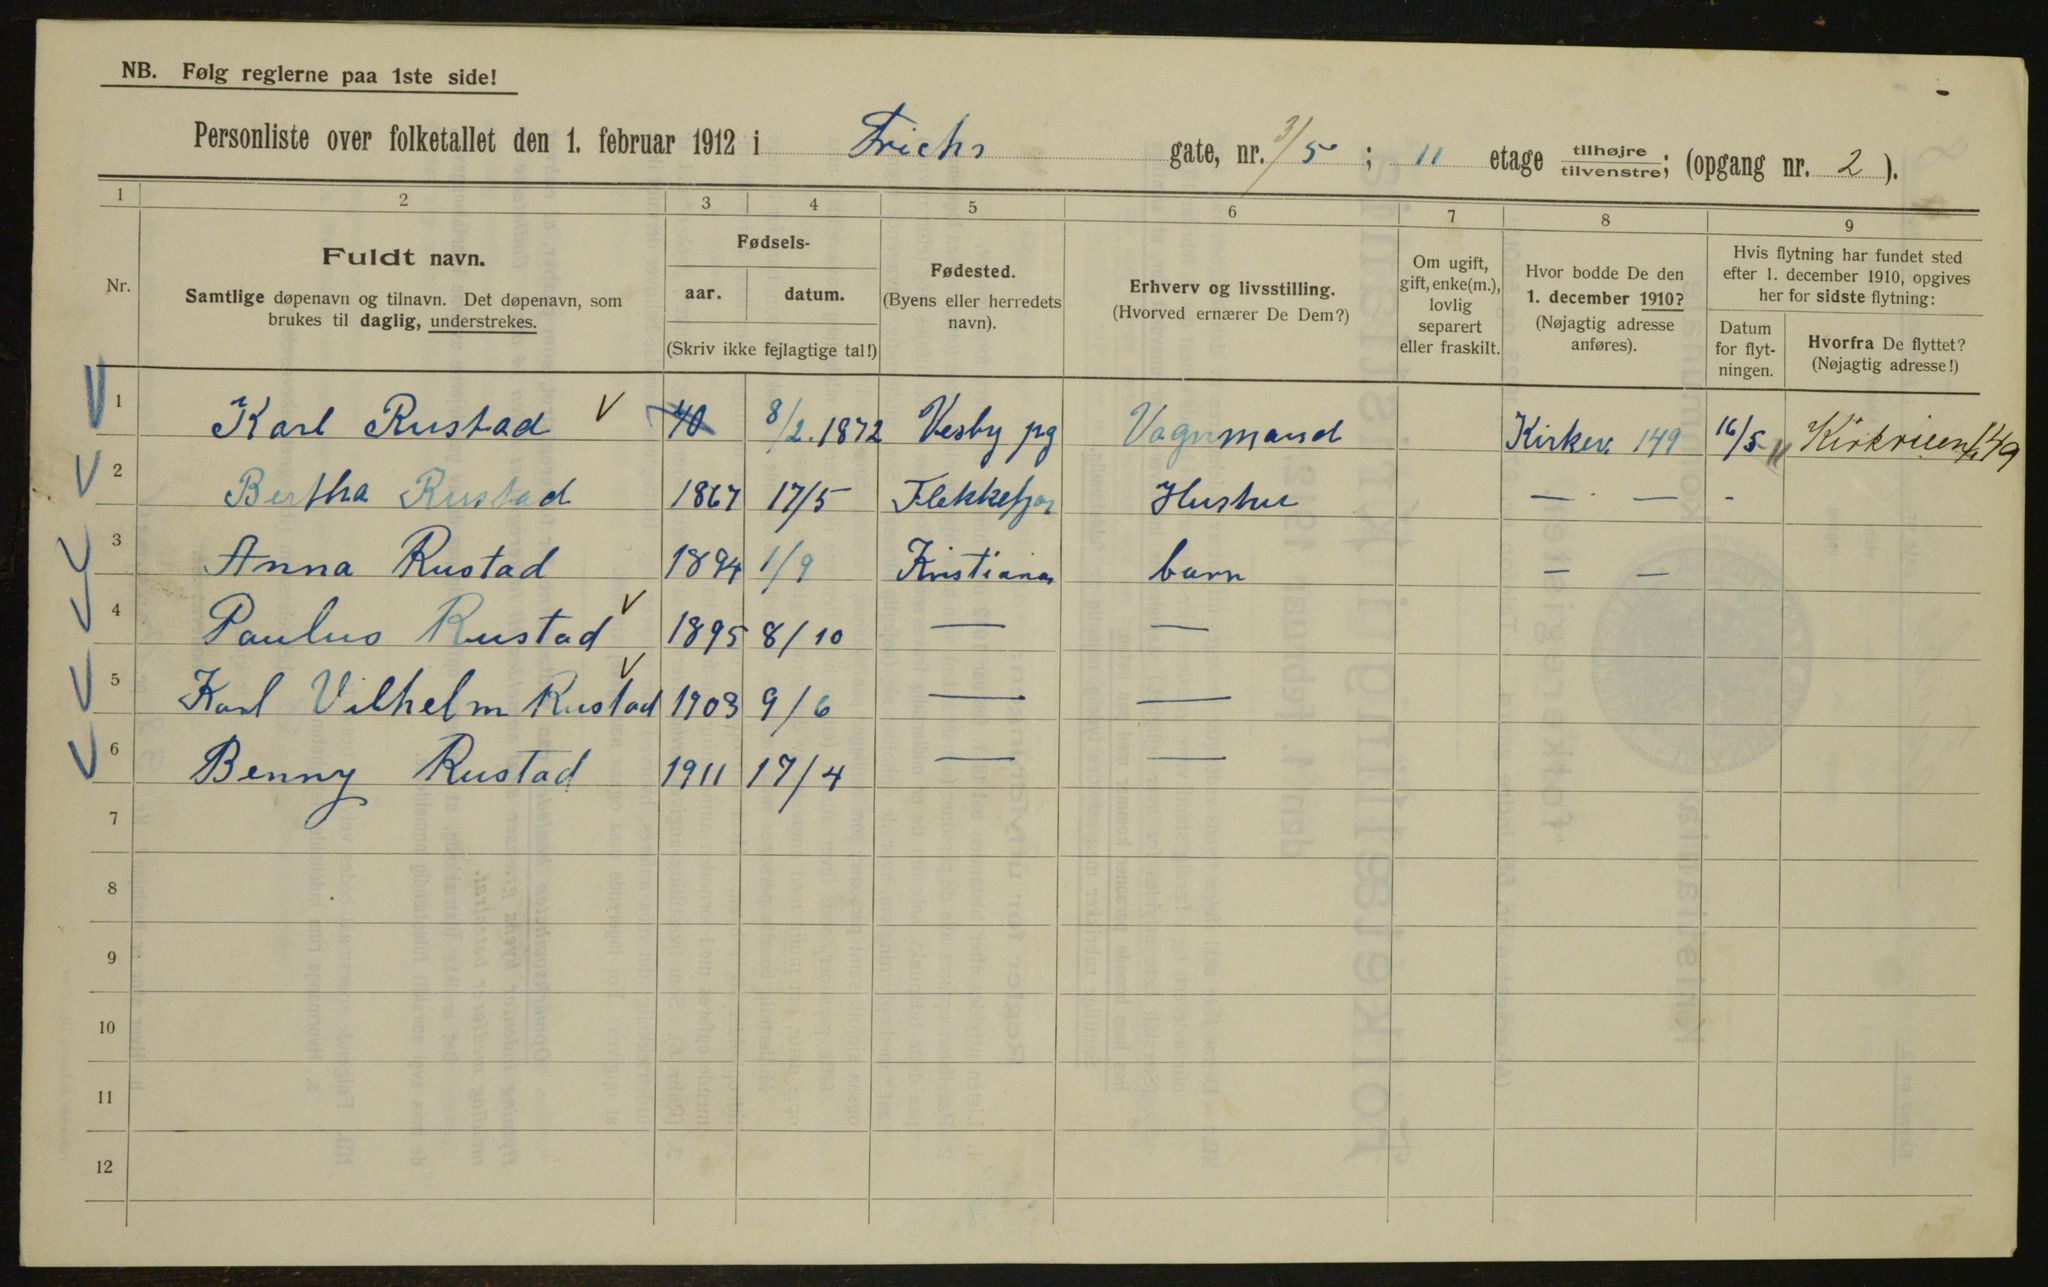 NB. Følg reglerne paa 1ste side!
Personliste over folketallet den 1. februar 1912 i Frichs gate, nr. 3/5 ; 11 etage tilhøjre/tilvenstre; (opgang nr. 2 ).
1 2 3 4 5 6 7 8 9
Nr.
Fuldt navn.
Samtlige døpenavn og tilnavn. Det døpenavn, som
brukes til daglig, understrekes.
Fødsels-
aar. datum.
(Skriv ikke fejlagtige tal!)
Fødested.
(Byens eller herredets
navn).
Erhverv og livsstilling.
(Hvorved ernærer De Dem?)
Om ugift,
gift, enke(m.),
lovlig
separert
eller fraskilt.
Hvor bodde De den
1. december 1910?
(Nøjagtig adresse
anføres).
Hvis flytning har fundet sted
efter 1. december 1910, opgives
her for sidste flytning:
Datum
for flyt-
ningen.
Hvorfra De flyttet?
(Nøjagtig adresse!)
1 Karl Rustad 40 8/2. 1872 Vesby pg Vognmand Kirkev. 149 16/5 11 Kirkveien 149
2 Bertha Rustad 1867 17/5 Flekkefjor Hustru — — -
3 Anna Rustad 1894 1/9 Kristiania barn — —
4 Paulus Rustad 1895 8/10 — —
5 Karl Vilhelm Rustad 1903 9/6 — —
6 Benny Rustad 1911 17/4 — —
7
8
9
10
11
12